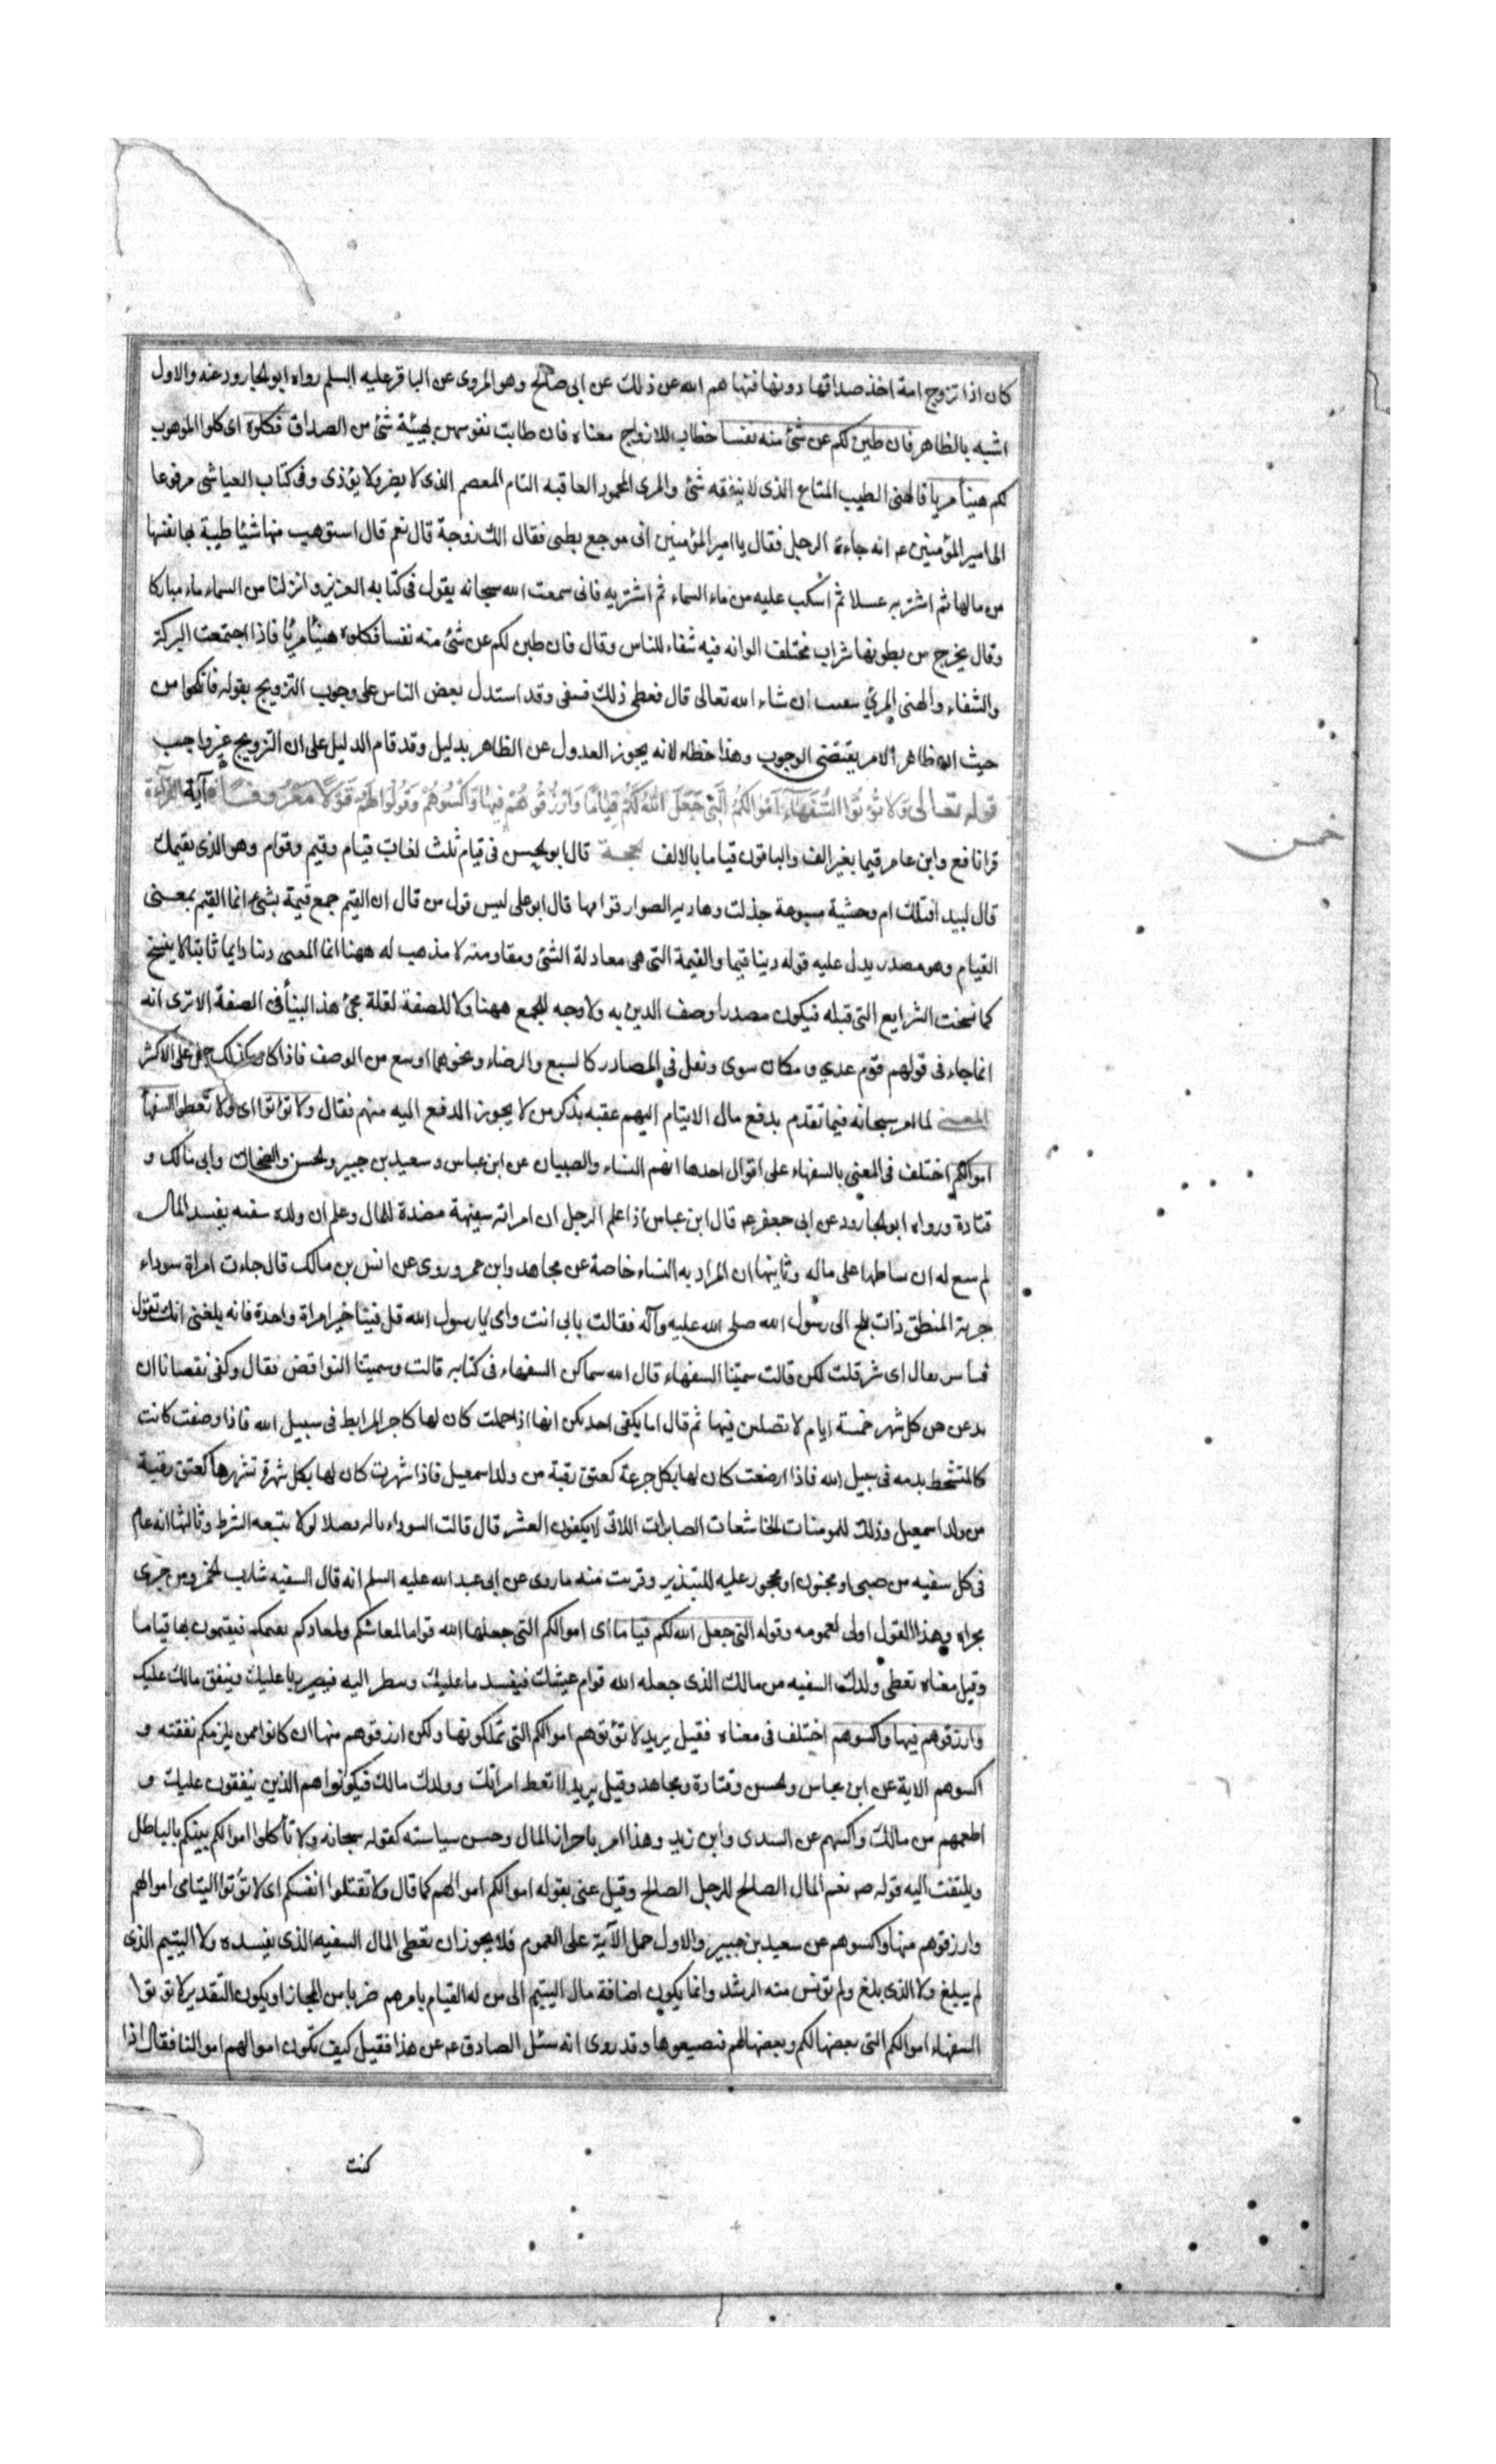 كان اذا تزوج امة اخذ صداقها دونها فنهاهم الله عن ذلك عن ابى صالح وهو المروى عن الباقر عليه السلم رواه ابو الجارود عنه والاول
اشبه بالظاهر فان طبن لكم عن شئ منه نفسا خطاب للازواج معناه فان طابت نفوسهن بهيئة شئ من الصداق فكلوه اى كلوا الموهوب
لكم هنيأ مريا فالهنى الطيب المتاع الذى لا ينفقه شئ والمرى المحمود العاقبه التام المعصم الذى لا يضر ولا يؤذى وفى كتاب العياشى مرفوعا
الى امير المؤمنين ع انه جاءه الرجل فقال يا امير المؤمنين انى موجع بطنى فقال الك زوجة قال نعم قال استوهب منها شيئا طيبة بها نفسها
من مالها ثم اشتر به عسلا ثم اسكب عليه من ماء السماء ثم اشتربه فانى سمعت الله سبحانه يقول فى كتابه العزيز وانزلنا من السماء ماء مباركا
وقال يخرج من بطونها شراب مختلف الوانه فيه شفاء للناس وقال فان طبن لكم عن شئ منه نفسا فكلوه هنيئا مريئا فاذا اجتمعت البركة
والشفاء والهنى المرئ ان شاء الله تعالى قال ففعل ذلك فشفى وقد استدل بعض الناس على وجوب التزويج بقوله فانكحوا من
حيث ان ظاهر الامر يقتضى الوجوب وهذا خطاء لانه يجوز العدول عن الظاهر بدليل وقد قام الدليل على ان التزويج غير واجب
قوله تعالى وَلَا تُؤْتُوا السُّفَهَاءَ اَمْوَالَكُمُ الَّتِى جَعَلَ اللهُ لَكُمْ قِيَامًا وَارْزُقُوهُمْ فِيهَا وَاكْسُوهُمْ وَقُولُوا لَهُمْ قَوْلًا مَعْرُوفًا آية القرآءة
قرا نافع وابن عامر قيما بغير الف والباقون قياما بالالف الحجة قال ابو الحسن فى قيام ثلث لغات قيام وقيم وقوام وهو الذى يقيمك
قال لبيد افتلك ام وحشية مسبوعة خذلت وهادية الصوار قوامها قال ابو على ليس قول من قال ان القيم جمع قيمة بشئ انما القيم بمعنى
القيام وهو مصدر يدل عليه قوله دينا قيما والقيمة التى هى معادلة الشئ ومقاومته لا مذهب له ههنا انما المعنى دينا دايما ثابتا لا ينسخ
كما نسخت الشرايع التى قبله فيكون مصدرا وصف الدين به ولا وجه للجمع ههنا ولا للصفة لقلة مجئ هذا البنأ فى الصفة الا ترى انه
انما جاء فى قولهم قوم عدي ومكان سوى وفعل فى المصادر كالشبع والرضاء ونحوهما اوسع من الوصف فاذا كان كذلك حمل على الاكثر
المعنى لما امر سبحانه فيما تقدم بدفع مال الايتام اليهم عقبه بذكر من لا يجوز الدفع اليه منهم فقال ولا تؤتوا اى ولا تعطوا السفهأ
اموالكم اختلف فى المعنى بالسفهاء على اقوال احدها انهم النساء والصبيان عن ابن عباس وسعيد بن جبير والحسن والضحاك وابى مالك و
قتادة ورواه ابو الجارود عن ابى جعفر ع قال ابن عباس اذا علم الرجل ان امراته سفيهة مفسدة للمال وعلم ان ولده سفيه يفسد المال
لم يسع له ان يسلطها على ماله وثانيها ان المراد به النساء خاصة عن مجاهد وابن عمر وروى عن انس بن مالك قال جاءت امراة سوداء
جرية المنطق ذات ملح الى رسول الله صلى الله عليه وآله فقالت بابى انت وامى يا رسول الله قل فينا خيرا مراة واحدة فانه بلغنى انك تقول
فينا شر قال اى شر قلت لكن قالت سميتنا السفهاء قال الله سماكن السفهاء فى كتابه قالت وسميتنا النواقص فقال وكفى نقصانا ان
تدعن من كل شهر خمسة ايام لا تصلين فيها ثم قال اما يكفى احديكن انها اذا حملت كان لها كاجر المرابط فى سبيل الله فاذا وضعت كانت
كالمتشحط بدمه فى سبيل الله فاذا ارضعت كان لها بكل جرعة كعتق رقبة من ولد اسمعيل فاذا سهرت كان لها بكل سهرة تسهرها كعتق رقبة
من ولد اسمعيل وذلك للمومنات الخاشعات الصابرات اللاتى لا يكفرن العشير قال قالت السوداء ياله فضلا لولا يتبعه الشرط وثالثها انه عام
فى كل سفيه من صبى او مجنون او محجور عليه للتبذير وقريب منه ما روى عن ابى عبد الله عليه السلم انه قال السفيه شارب الخمر ومن جرى
مجراه وهذا القول اولى لعمومه وقوله التى جعل الله لكم قياما اى اموالكم التى جعلها الله قواما لمعاشكم ولمعادكم فيقيمون بها قياما
وقيل معناه تعطى ولدك السفيه من مالك الذى جعله الله قوام عيشك فيفسد ما عليك اليه فيصير ربا عليك وينفق مالك عليك
وارزقوهم فيها واكسوهم اختلف فى معناه فقيل يريد لا تؤتوهم اموالكم التى تملكونها ولكن ارزقوهم منها ان كانوا ممن يلزمكم نفقته و
اكسوهم الاية عن ابن عباس والحسن وقتادة ومجاهد وقيل يريد لا تعط امراتك وولدك مالك فيكونوا هم الذين ينفقون عليك و
اطعمهم من مالك واكسهم عن السدى وابن زيد وهذا امر باحراز المال وحسن سياسته كقوله سبحانه ولا تأكلوا اموالكم بينكم بالباطل
ويلتفت اليه قوله ص نعم المال الصالح للرجل الصالح وقيل عنى بقوله اموالكم اموالهم كما قال ولا تقتلوا انفسكم اى لا تؤتوا اليتامى اموالهم
وارزقوهم منها واكسوهم عن سعيد بن جبير والاول حمل الآية على العموم فلا يجوز ان تعطى المال السفيه الذى يفسده ولا اليتيم الذى
لم يبلغ ولا الذى بلغ ولم تؤنس منه الرشد وانما يكون اضافة مال اليتيم الى من له القيام بامرهم ضربا من المجاز او يكون التقدير لا تؤتوا
السفهاء اموالكم التى بعضها لكم وبعضها لهم فتضيعوها وقد روى انه سئل الصادق ع عن هذا فقيل كيف تكون اموالهم اموالنا فقال اذا
كنت